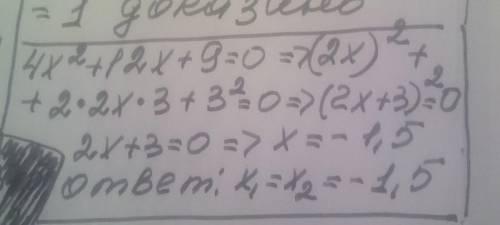 = 1 доказано
4x²+12x+9=0 =>(2x)²+
+2•2x•3+3²=0=>(2x+3)²=0
2x+3=0 => x=-1,5
ответ: x₁=x₂=-1,5